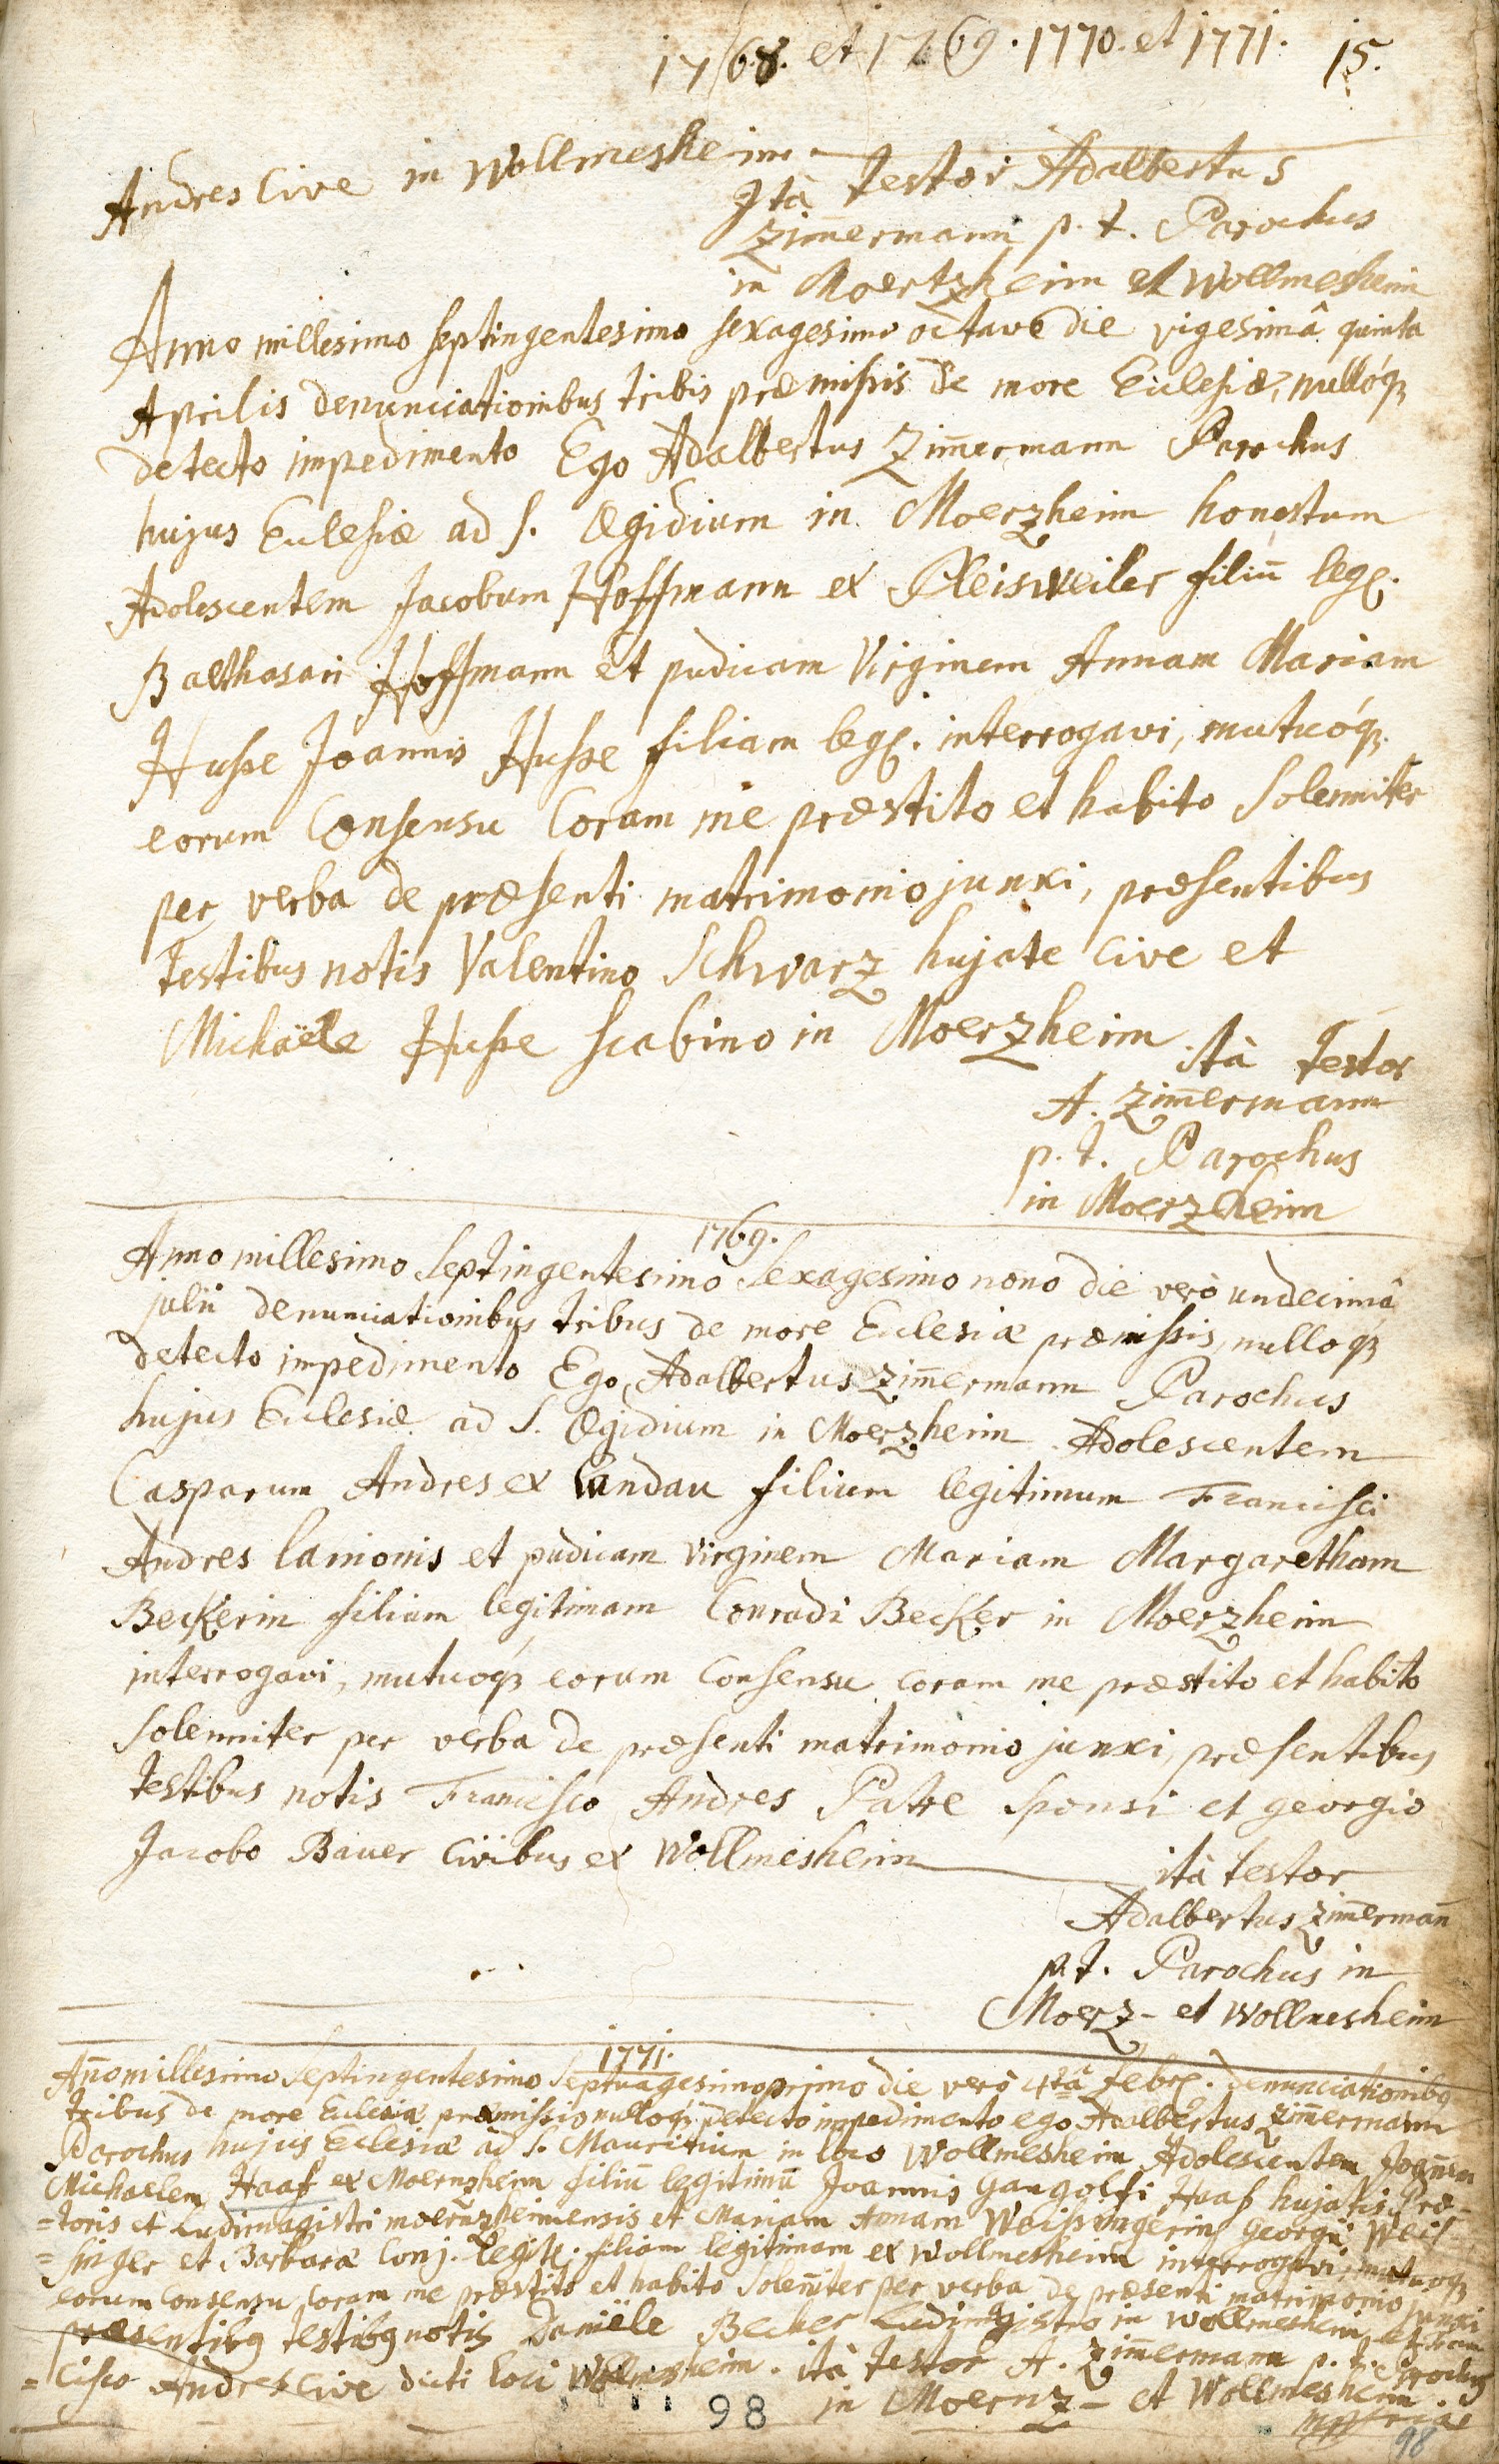 1768. et 1769. 1770. et 1771. 15.
Andres Cive in Wollmesheim
Ità testor Adalbertus
Zim̄ermann p. t. Parochus
in Moertzheim et Wollmesheim
Anno millesimo septingentesimo sexagesimo octavo die vigesimâ quinta
Aprilis denunciationibus tribis præmissis de more Eclesiæ, nullóq₃
detecto impedimento Ego Adalbertus Zim̄ermann Parochus
hujus Eclesiæ ad S. Ægidium in Moerzheim honestum
Adolescentem Jacobum Hoffmann ex Pleisweiler filiū leg.
Balthasari Hoffmann et pudicam Virginem Annam Mariam
Husse Joannis Husse filiam leg. interrogavi, mutuóq₃
eorum Consensu Coram me præstito et habito Solenniter
per verba de præsenti matrimonio junxi, præsentibus
testibus notis Valentino Schwarz hujate cive et
Michaële Husse scabino in Moerzheim
ità testor
A. Zim̄ermann
p. t. Parochus
in Moerzheim
1769.
Anno millesimo Septingentesimo Sexagesimo nono die verò undecimâ
julii denunciationibus tribus de more Eclesiæ præmissis, nulloq₃
detecto impedimento Ego Adalbertus Zim̄ermann Parochus
hujus Eclesiæ ad S. Ægidium in Moerzheim Adolescentem
Casparum Andres ex Landau filium legitimum Francisci
Andres lanionis et pudicam virginem Mariam Margaretham
Beckerin filiam legitimam Conradi Becker in Moerzheim
interrogavi, mutuoq₃ eorum Consensu coram me præstito et habito
Solenniter per verba de præsenti matrimonio junxi, præsentibus
testibus notis Francisco Andres Patre Sponsi et georgio
Jacobo Bauer Civibus ex Wollmesheim
ità testor
Adalbertus Zim̄ermañ
p. t. Parochus in
Moerz- et Wollmesheim
1771.
Añomillesimo Septingentesimo Septuagesimoprimo die verò 4tâ febr. denunciationibq
tribus de more Eclesiæ præmissis nulloq₃ detecto impedimento ego Adalbertus Zim̄ermann
Parochus hujus Eclesiæ ad S. Mauritium in loco Wollmesheim Adolescentem Joañem
Michaelem Haaf ex Moernzheim filiū legitimū Joannis Gangolfi Haaf hujatis Præ-
=toris et Ludimagistri moernzheimensis et Mariam Annam Weissingerin Georgii Weis-
=singer et Barbaræ Conj. legit. filiam legitimam ex Wollmesheim interrogavi, mutuoq₃
eorum Consensu coram me præstito et habito Soleñiter per verba de præsenti matrimonio junxi
præsentibq testibq notis Daniële Becker Ludimgistro in Wollmesheim et Fran
=cisco Andres cive dicti loci Wollmesheim. ità testor A. Zim̄ermann p. t. Parochus
in Moernz- et Wollmesheim.
98
98